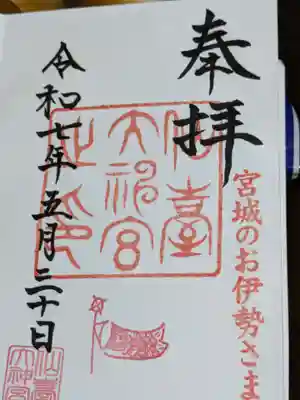 宮城のお伊勢さま
奉拝
仙臺
大神宮
印
令和七年五月二十日
仙臺
大神宮